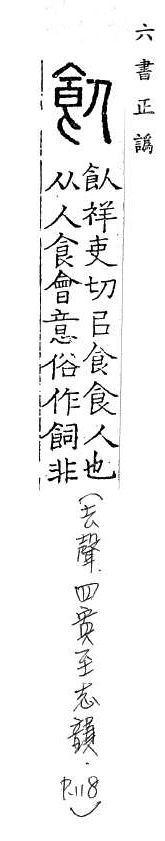 六書正譌
飤
飤祥吏切㠯食食人也
从人食會意俗作飼非
(去聲.四寘至志韻.
P.118)